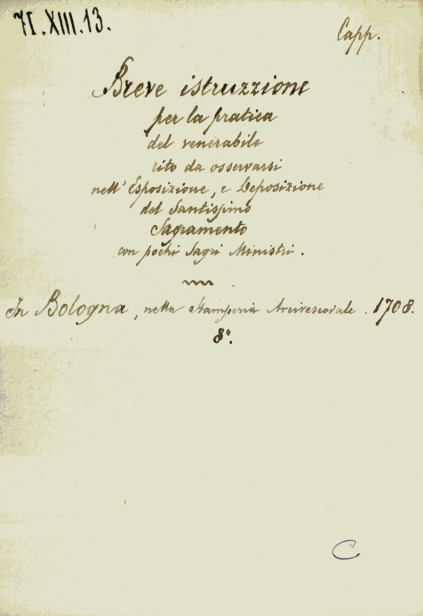 71.XIII.13.
Capp.
Breve istruzzione
per la pratica
del venerabile
rito da osservarsi
nell' Esposizione, e Deposizione
del Santissimo
Sagramento
con pochi Sagri Ministri.
In Bologna, nella Stamperia Arcivescovale. 1708.
8º.
C